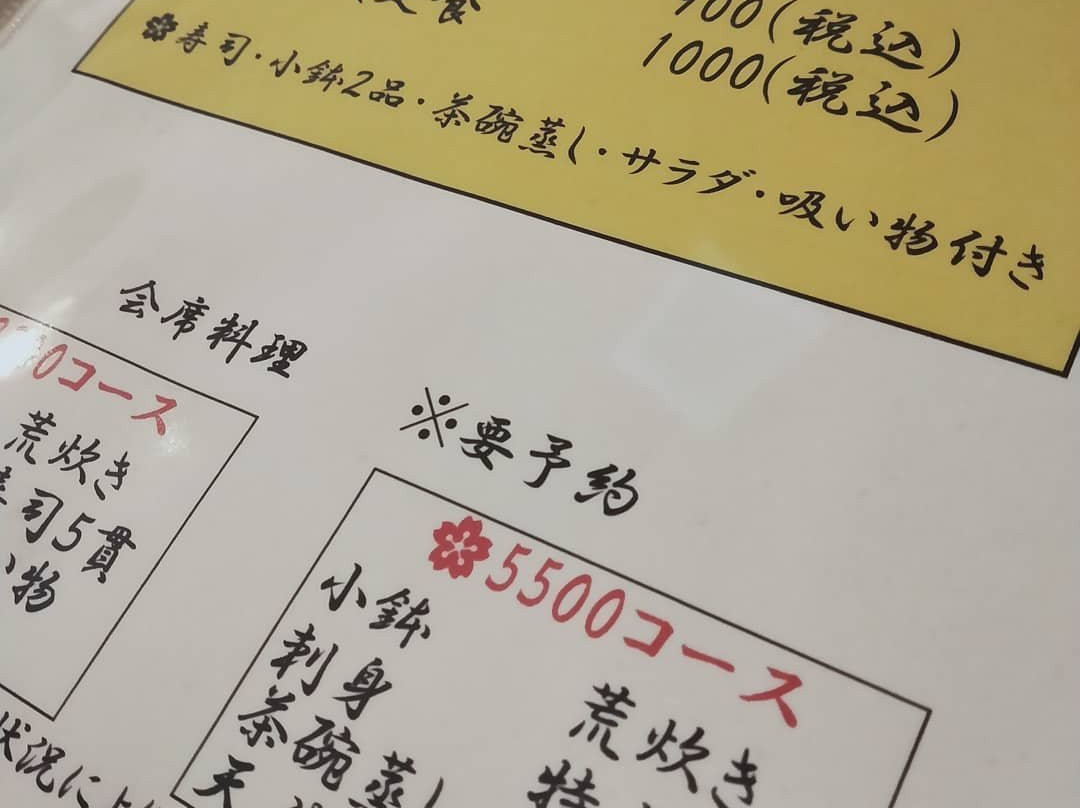 00(税込)
1000(税込)
寿司・小鉢2品・茶碗蒸し・サラダ・吸い物付き
会席料理
0コース
荒炊き
寿司5貫
い物
※要予約
5500コース
小鉢
刺身
茶碗蒸し
天
荒炊き
特
状況によ